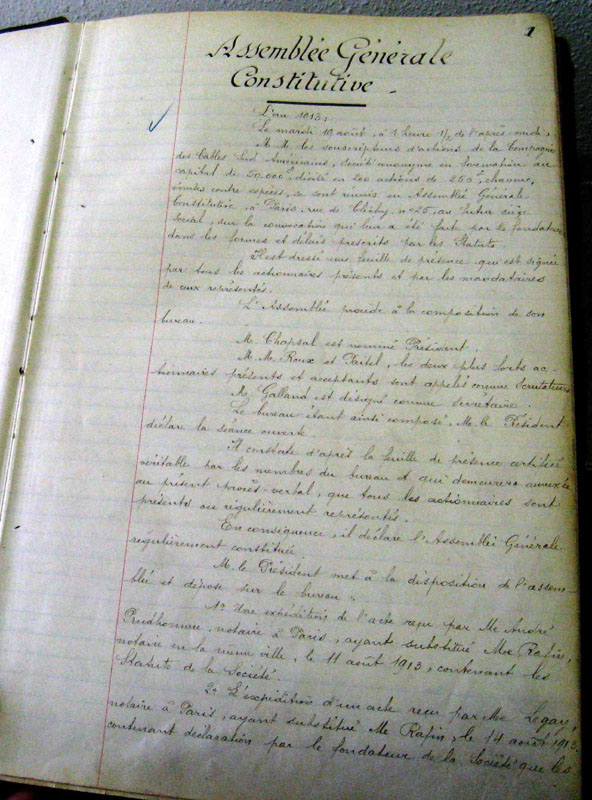 1
Assemblée Générale
Constitutive
L'an 1913,
Le mardi 19 août, à 1 heure 1/2 de l'après-midi,
M.M. les souscripteurs d'actions de la Compagnie
des Câbles Sud Américains, société anonyme en formation au
capital de 50.000f, divisé en 200 actions de 250f, chacune,
émises contre espèces, se sont réunis en Assemblée Générale
Constitutive, à Paris, rue de Clichy, nº 25, au futur siège
social, sur la convocation qui leur a été faite par le fondateur
dans les formes et délais prescrits par les Statuts.
Il est dressé une feuille de présence qui est signée
par tous les actionnaires présents et par les mandataires
de ceux représentés.
L'Assemblée procède à la composition de son
bureau.
M. Chapsal est nommé Président.
M.M. Roux et Paitel, les deux plus forts ac-
tionnaires présents et acceptants sont appelés comme Scrutateurs
M. Galland est désigné comme secrétaire.
Le bureau étant ainsi composé, M. le Président
déclare la séance ouverte.
Il constate d'après la feuille de présence certifiée
véritable par les membres du bureau et qui demeurera annexée
au présent procès-verbal, que tous les actionnaires sont
présents ou régulièrement représentés.
En conséquence, il déclare l'Assemblée Générale
régulièrement constituée.
M. le Président met à la disposition de l'assem
blée et dépose sur le bureau:
1º Une expédition de l'acte reçu par Me André
Prudhomme, notaire à Paris, ayant substitué Me Rafin,
notaire en la même ville, le 11 août 1913, contenant les
Statuts de la Société.
2º L'expédition d'un acte reçu par Me Legay,
notaire à Paris, ayant substitué Me Rafin, le 14 août 1913
contenant déclaration par le fondateur de la Société que les